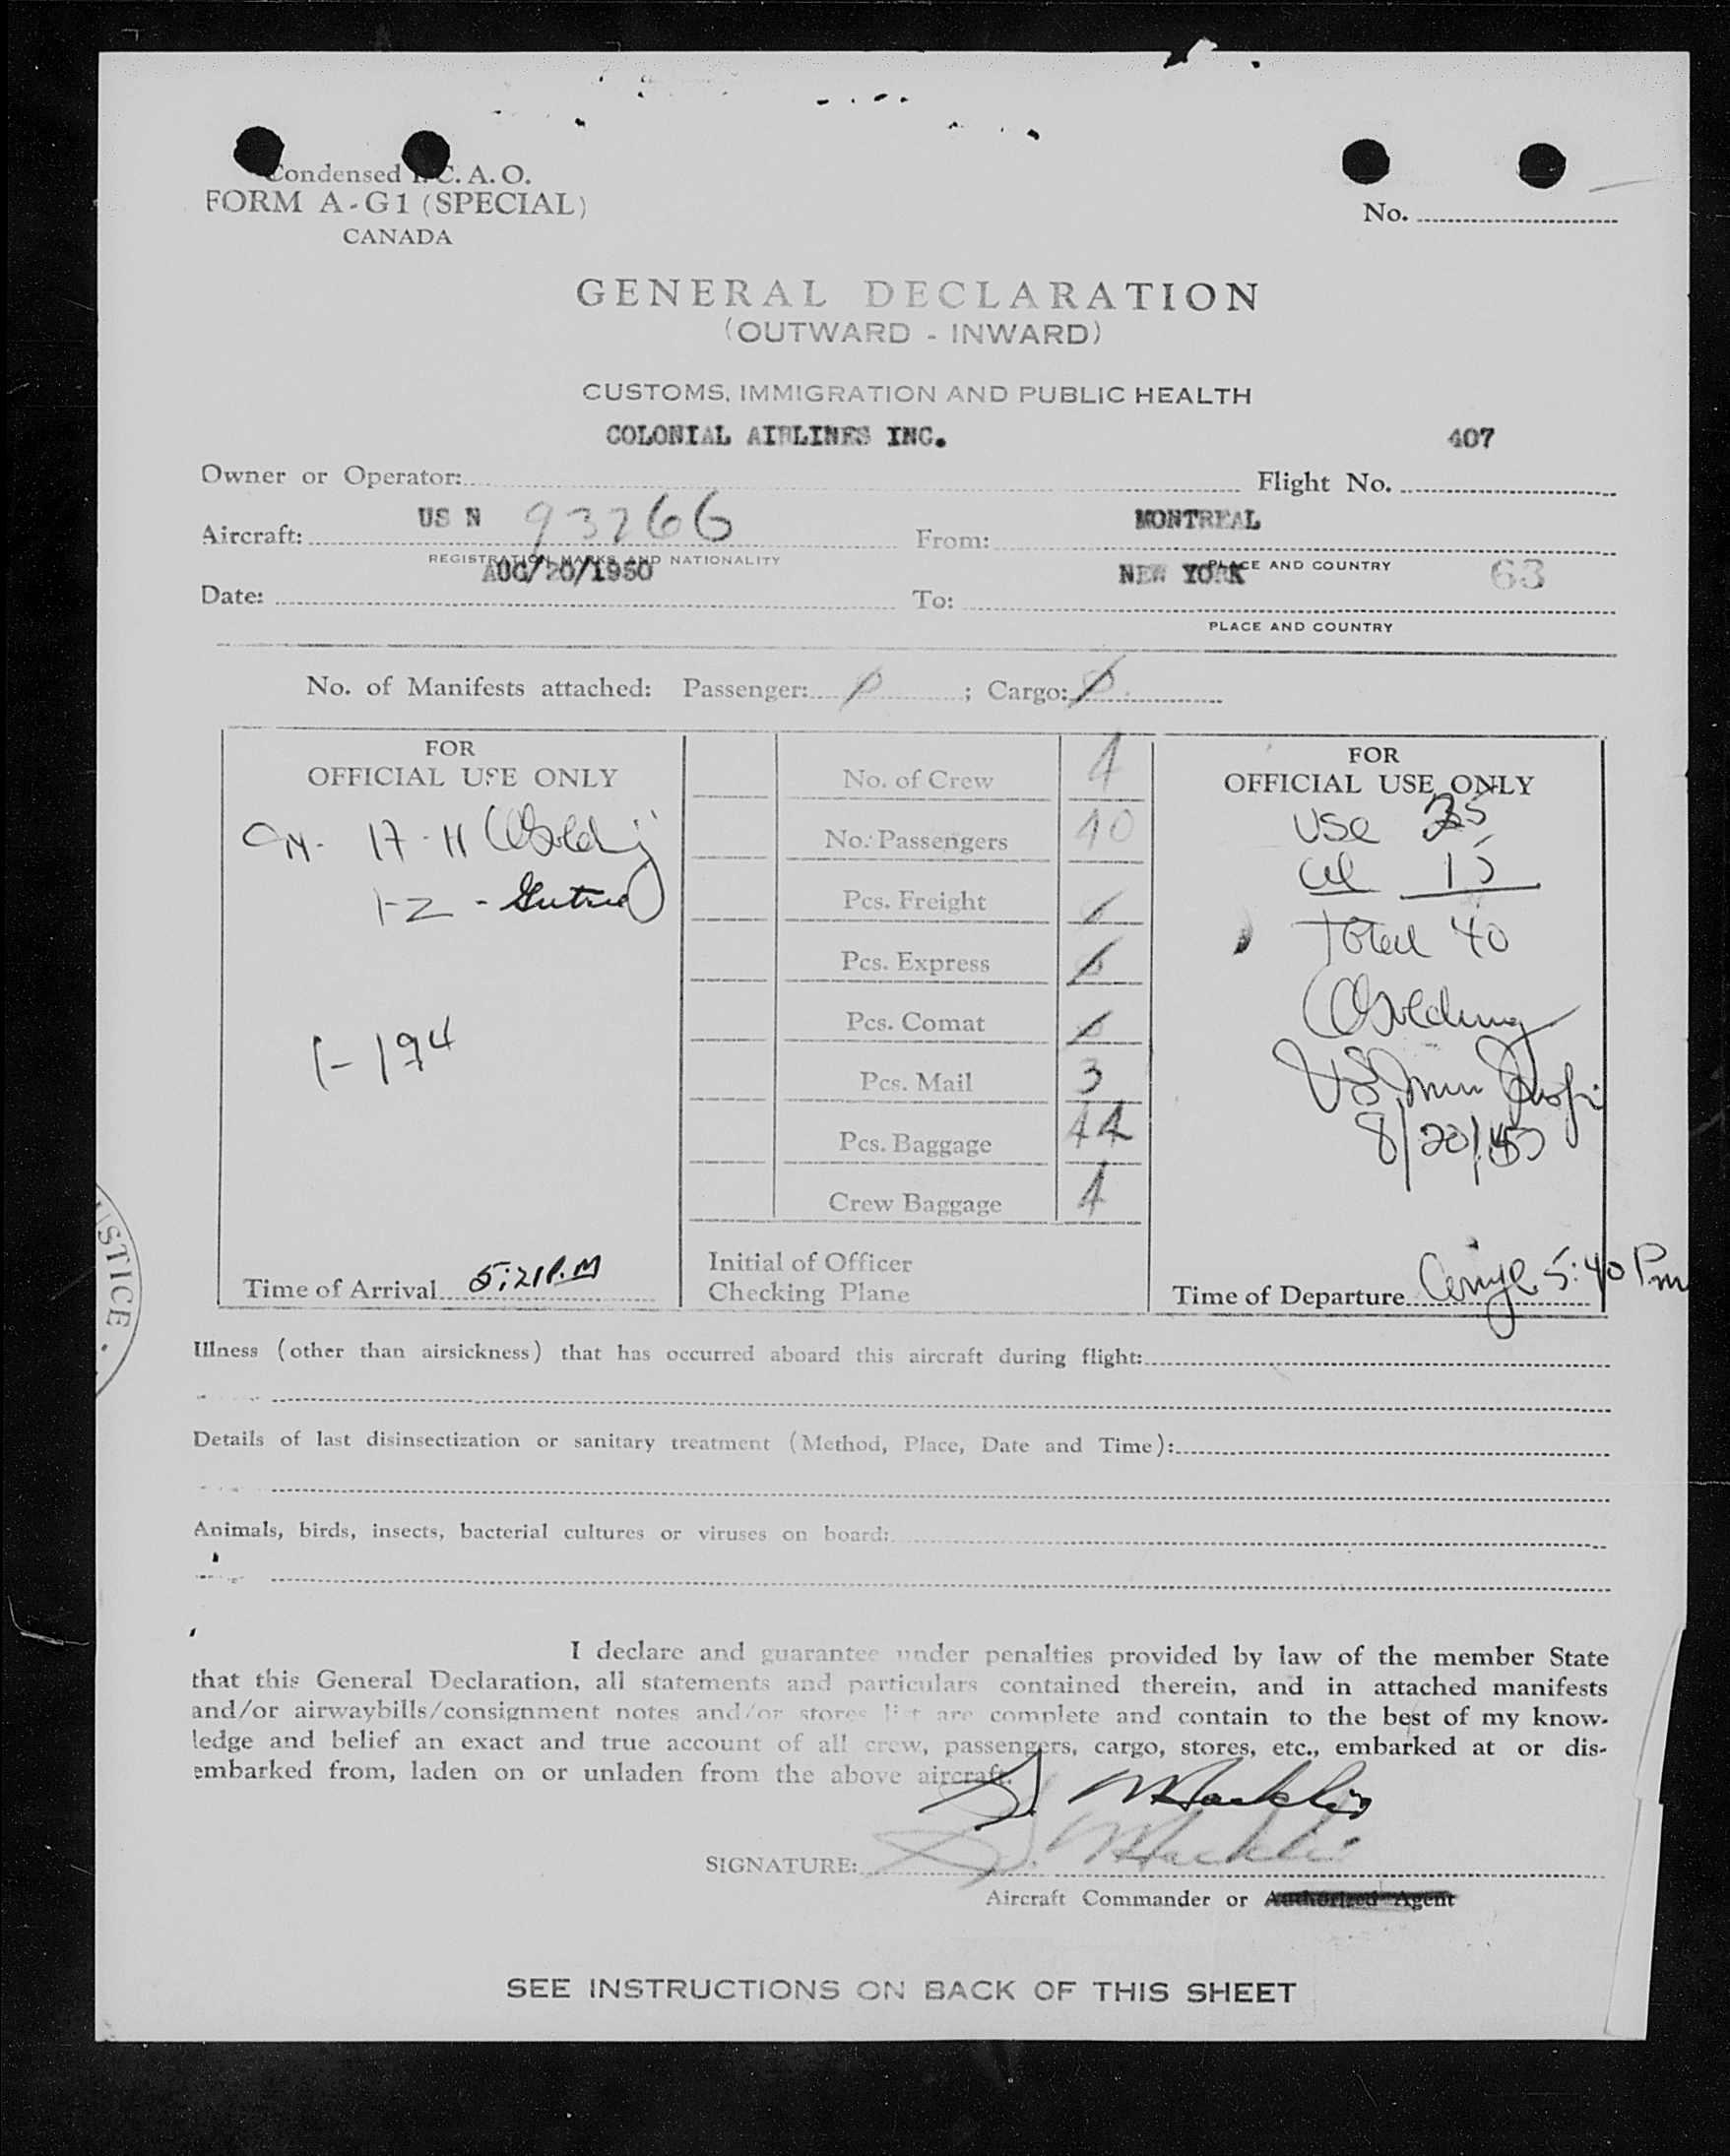 Condensed I. C. A. O.
FORM A-G1 (SPECIAL)
CANADA
No.
GENERAL DECLARATION
(OUTWARD - INWARD)
CUSTOMS, IMMIGRATION AND PUBLIC HEALTH
COLONIAL AIRLINES INC. 407
Owner or Operator: Flight No.
US N 93266 MONTREAL
Aircraft: From:
REGISTRATION MARKS AND NATIONALITY PLACE AND COUNTRY
AUG/20/1950 NEW YORK 63
Date: To:
PLACE AND COUNTRY
No. of Manifests attached: Passenger: ; Cargo:
FOR
OFFICIAL USE ONLY
17-11
1-2 -
1-194
Time of Arrival 5:21 P.M
No. of Crew 4
No. Passengers 40
Pcs. Freight
Pcs. Express
Pcs. Comat
Pcs. Mail 3
Pcs. Baggage 44
Crew Baggage 4
Initial of Officer
Checking Plane
FOR
OFFICIAL USE ONLY
USC 25
15
Total 40
Golding
US Imm Insp
8/20/50
Time of Departure 5:40 Pm
USTICE .
Illness (other than airsickness) that has occurred aboard this aircraft during flight:
Details of last disinsectization or sanitary treatment (Method, Place, Date and Time):
Animals, birds, insects, bacterial cultures or viruses on board:
I declare and guarantee under penalties provided by law of the member State
that this General Declaration, all statements and particulars contained therein, and in attached manifests
and/or airwaybills/consignment notes and/or stores list are complete and contain to the best of my know-
ledge and belief an exact and true account of all crew, passengers, cargo, stores, etc., embarked at or dis-
embarked from, laden on or unladen from the above aircraft.
SIGNATURE:
Aircraft Commander or Authorized Agent
SEE INSTRUCTIONS ON BACK OF THIS SHEET